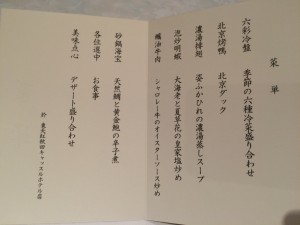 菜単
六彩冷盤 季節の六種冷菜盛り合わせ
北京烤鴨 北京ダック
濃湯排翅 姿ふかひれの濃湯蒸しスープ
泡炒明蝦 大海老と夏草花の皇家塩炒め
蠔油牛肉 シャロレー牛のオイスターソース炒め
砂鍋海宝 天然鯛と黄金鮑の辛子煮
各住選中 お食事
美味点心 デザート盛り合わせ
於 東天紅秋田キャッスルホテル店